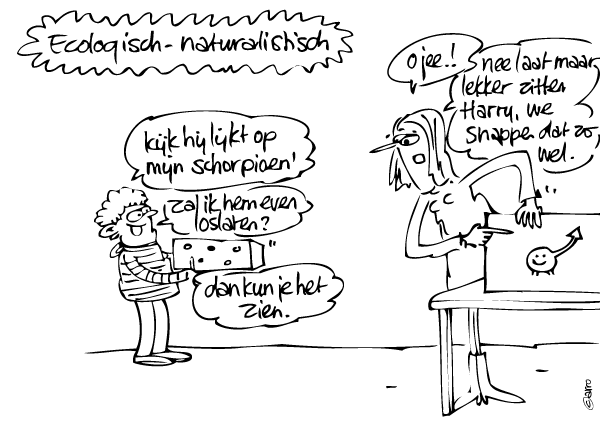 Ecologisch-naturalistisch
kijk hij lijkt op
mijn schorpioen!
zal ik hem even
loslaten?
dan kun je het
zien.
o jee!!
nee laat maar
lekker zitten
Harry, we
snappen dat zo
wel.